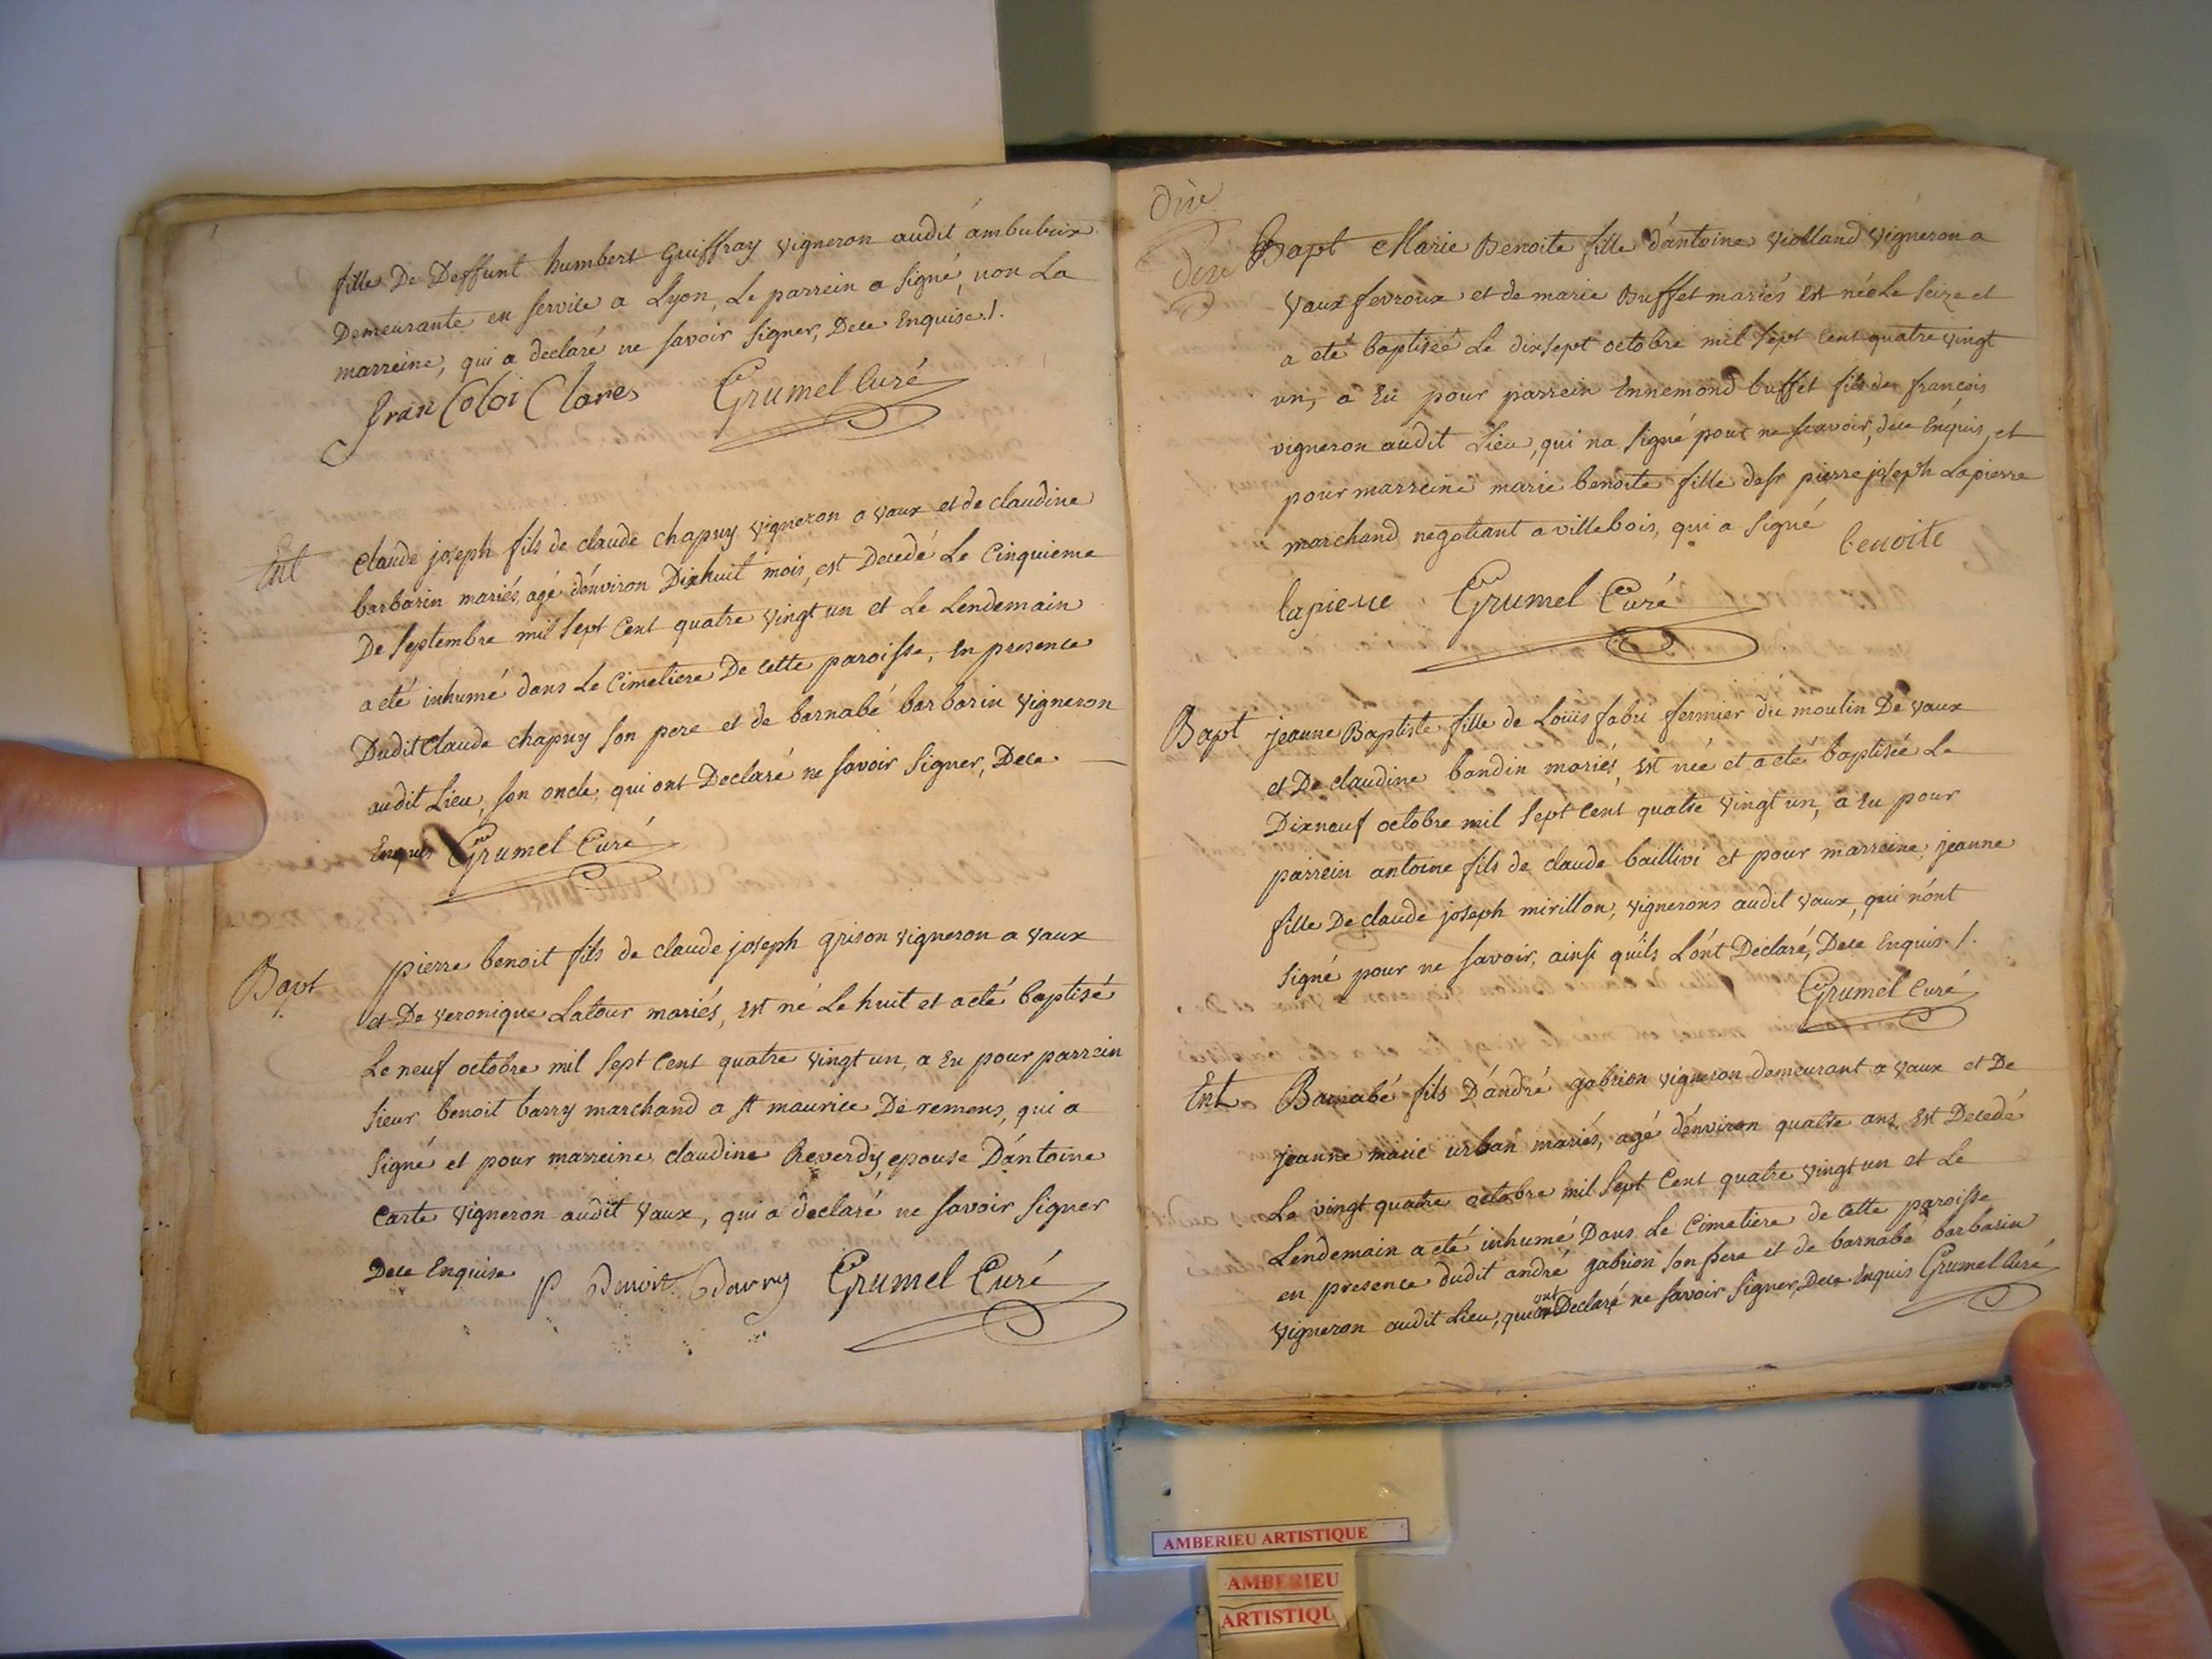 fille De Deffunt humbert Guiffray vigneron audit ambutrix
Demeurante en service a Lyon, Le parrein a signé, non La
marreine, qui a declaré ne savoir signer, Dece Enquise ./.
Grumel Curé
Ent claude joseph fils de claude chapuy vigneron a vaux et de claudine
barbarin mariés, agé d'environ Dixhuit mois, est Decedé Le Cinquieme
De septembre mil sept Cent quatre vingt un et Le Lendemain
a eté inhumé dans Le Cimetiere De cette paroisse, En presence
Dudit Claude chapuy son pere et de barnabé barbarin vigneron
audit Lieu, son oncle, qui ont Declaré ne savoir signer, Dece
Enquis Grumel Curé
Bapt pierre benoit fils de claude joseph grison vigneron a vaux
et De veronique Latour mariés, Est né Le huit et a eté baptisé
Le neuf octobre mil sept Cent quatre vingt un, a Eu pour parrein
sieur benoit barry marchand a st maurice De remens, qui a
signé et pour marreine claudine Reverdy, epouse D'antoine
Carte vigneron audit vaux, qui a declaré ne savoir signer
Dece Enquise P Benoit Barry Grumel Curé
dire
dire
Bapt Marie Benoite fille d'antoine violland vigneron a
vaux fevroux et de marie Buffet mariés Est née Le seize et
a eté baptiseé Le dixsept octobre mil sept Cent quatre vingt
un, a Eu pour parrein Ennemond buffet fils de françois
vigneron audit Lieu, qui na signé pour ne scavoir, dece Enquis, et
pour marreine marie benoite fille de sr pierre joseph Lapierre
marchand negotiant a villebois, qui a signé benoite
lapierre Grumel Curé
Bapt jeanne Baptiste fille de Loüis fabri fermier du moulin De vaux
et De claudine bandin mariés, Est née et a eté baptisée Le
Dixneuf octobre mil sept Cent quatre vingt un, a Eu pour
parrein antoine fils de claude baillivi et pour marreine, jeanne
fille De claude joseph mirillon, vignerons audit vaux, qui n'ont
signé pour ne savoir, ainsi qu'ils L'ont Declaré, Dece Enquis ./.
Grumel Curé
Ent Barnabé fils D'andré gabrion vigneron demeurant a vaux et De
jeanne marie urban mariés, agé d'environ quatre ans, Est Decedé
Le vingt quatre octobre mil sept Cent quatre vingt un et Le
Lendemain a eté inhumé Dans Le Cimetiere de cette paroisse
en presence dudit andré gabrion son pere et de barnabé barbarin
vigneron audit Lieu, qui ont Declaré ne savoir signer, Dece Enquis Grumel Curé
AMBERIEU ARTISTIQUE
AMBERIEU
ARTISTIQU